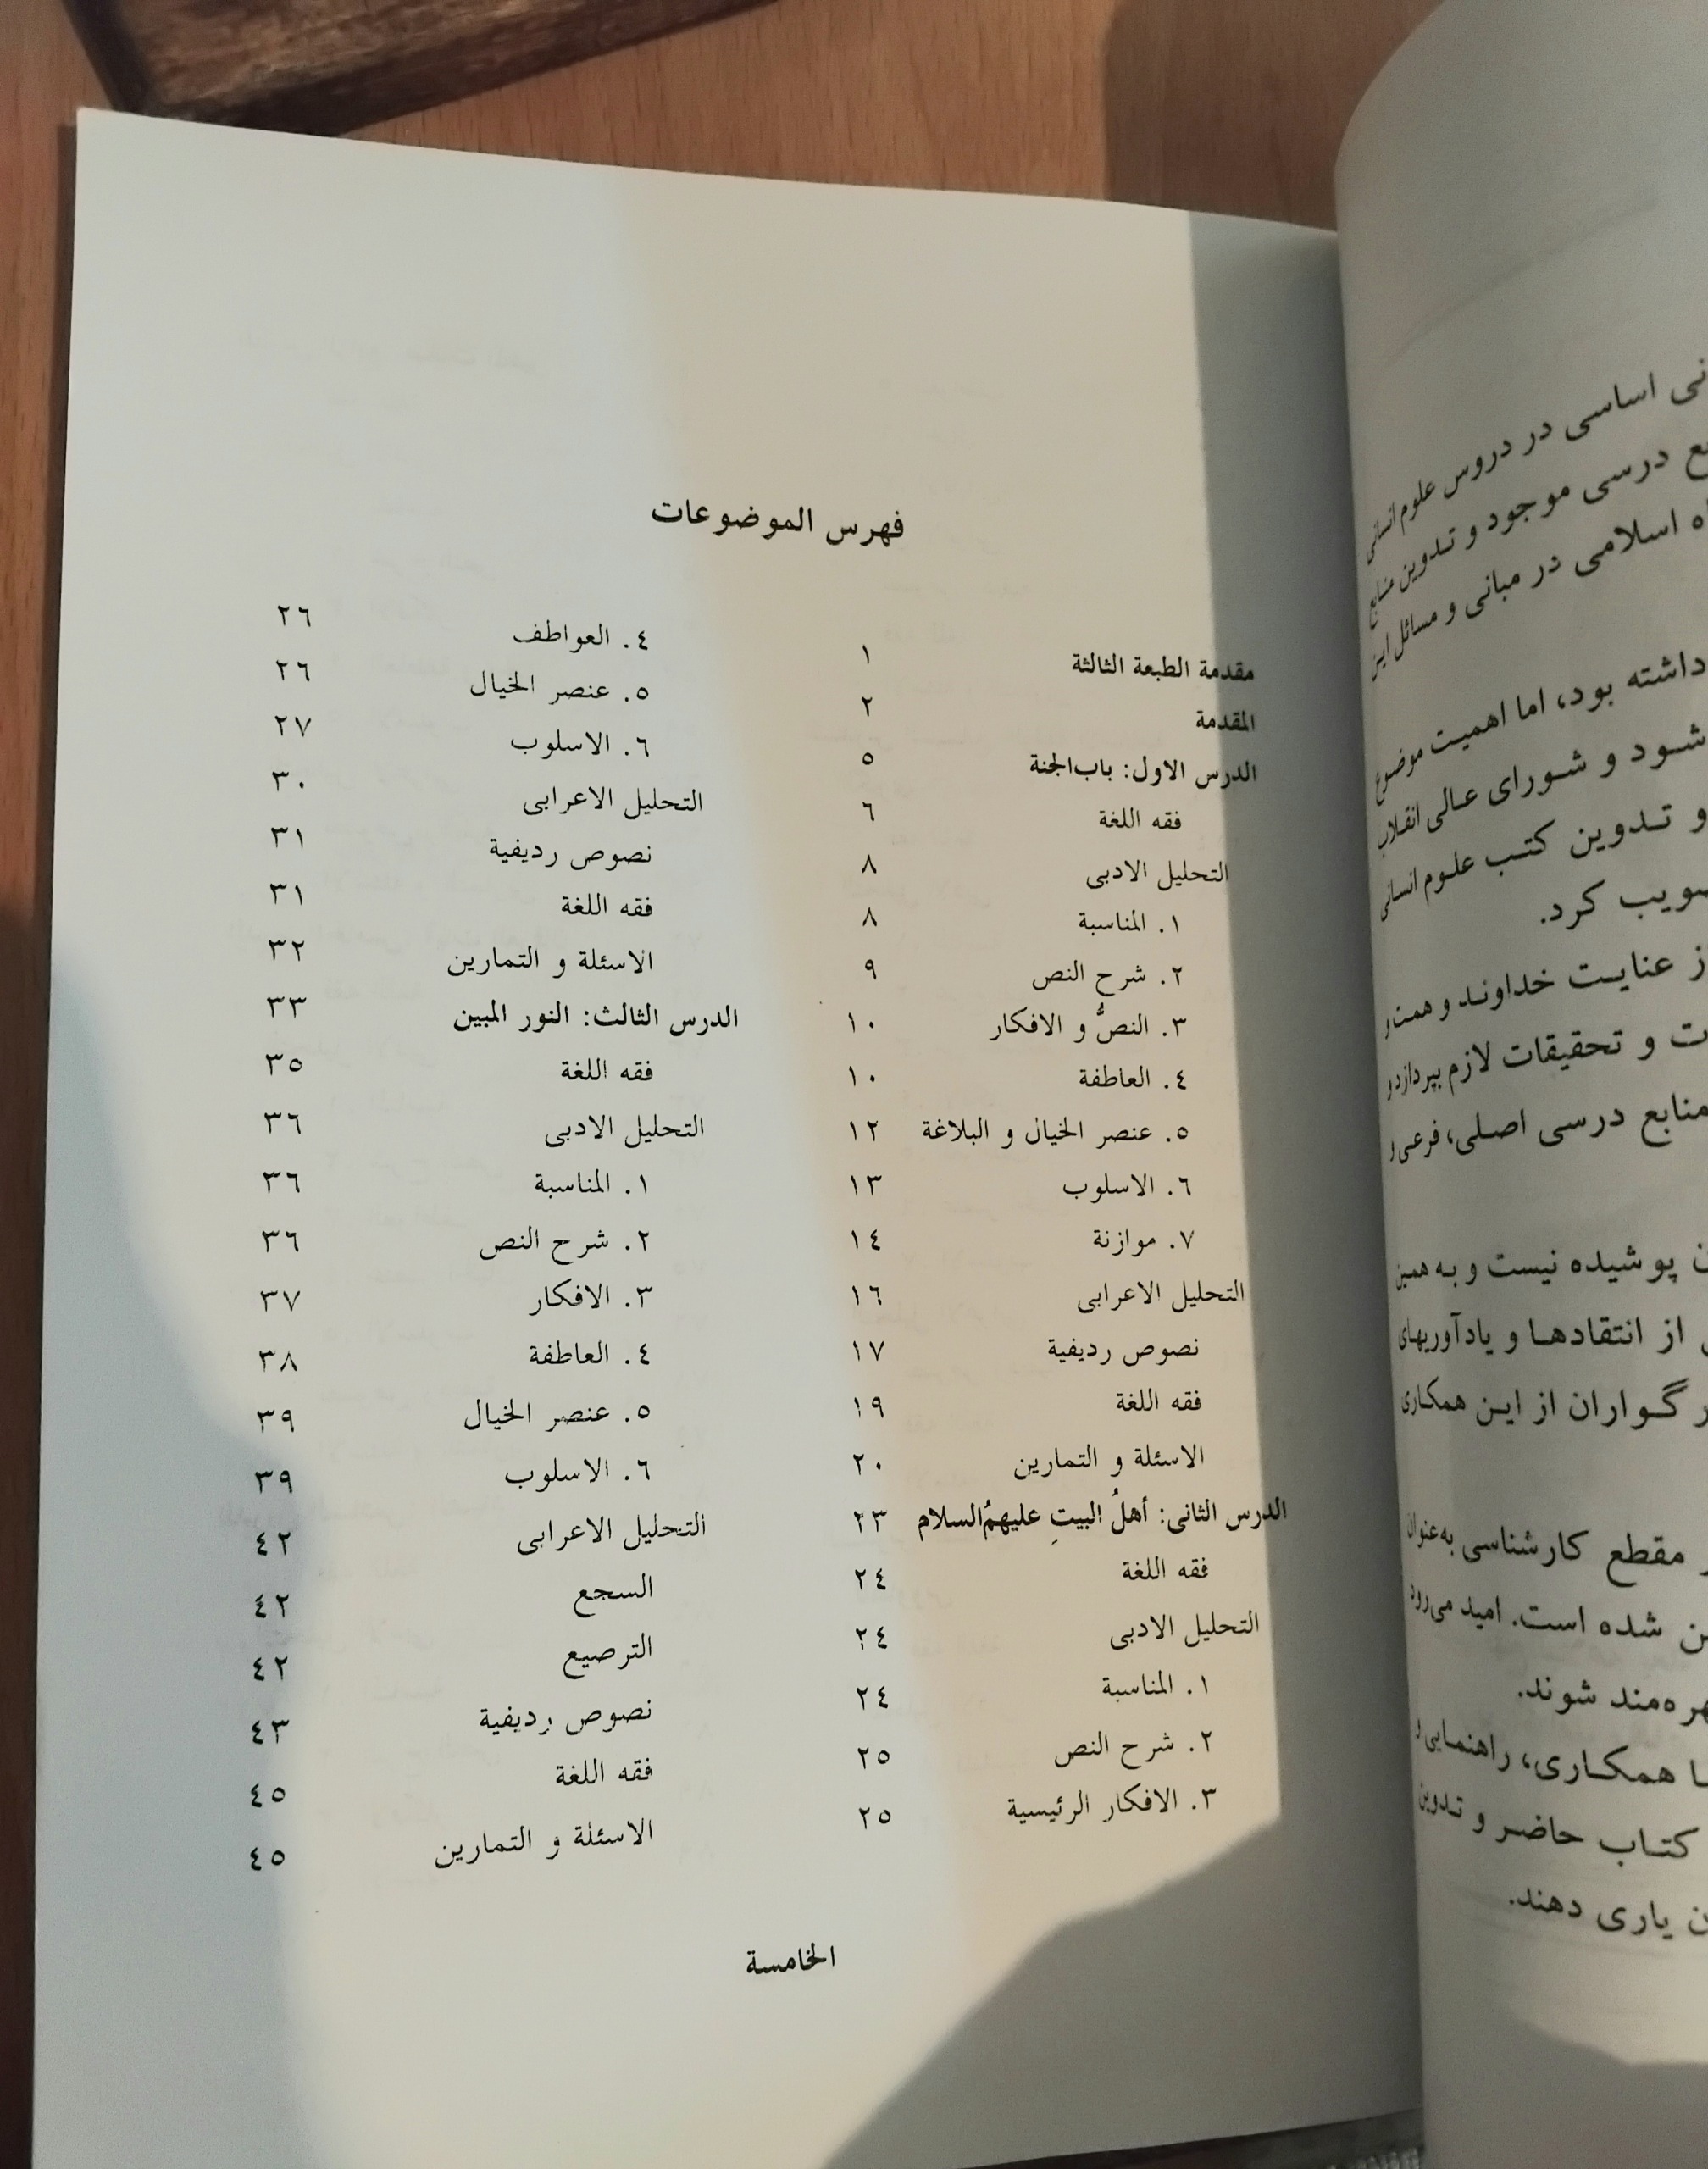 نی اساسی در دروس علوم انسانی
درسی موجود و تدوین منابع
اسلامی در مبانی و مسائل این
داشته بود، اما اهمیت موضوع
شود و شورای عالی انقلاب
و تدوین کتب علوم انسانی
کرد.
ز عنایت خداوند و همت و
ت و تحقیقات لازم بپردازد و
منابع درسی اصلی، فرعی و
ن پوشیده نیست و به همین
از انتقادها و یادآوریهای
گواران از این همکاری
مقطع کارشناسی به‌عنوان
شده است. امید می‌رود
هره‌مند شوند.
ا همکاری، راهنمایی و
کتاب حاضر و تدوین
ن یاری دهند.
فهرس الموضوعات
مقدمة الطبعة الثالثة ١
المقدمة ٢
الدرس الاول: باب‌الجنة ٥
فقه اللغة ٦
التحليل الادبى ٨
١. المناسبة ٨
٢. شرح النص ٩
٣. النصُّ و الافكار ١٠
٤. العاطفة ١٠
٥. عنصر الخيال و البلاغة ١٢
٦. الاسلوب ١٣
٧. موازنة ١٤
التحليل الاعرابى ١٦
نصوص رديفية ١٧
فقه اللغة ١٩
الاسئلة و التمارين ٢٠
الدرس الثانى: أهلُ البيتِ عليهمُ‌السلام ٢٣
فقه اللغة ٢٤
التحليل الادبى ٢٤
١. المناسبة ٢٤
٢. شرح النص ٢٥
٣. الافكار الرئيسية ٢٥
٤. العواطف ٢٦
٥. عنصر الخيال ٢٦
٦. الاسلوب ٢٧
التحليل الاعرابى ٣٠
نصوص رديفية ٣١
فقه اللغة ٣١
الاسئلة و التمارين ٣٢
الدرس الثالث: النور المبين ٣٣
فقه اللغة ٣٥
التحليل الادبى ٣٦
١. المناسبة ٣٦
٢. شرح النص ٣٦
٣. الافكار ٣٧
٤. العاطفة ٣٨
٥. عنصر الخيال ٣٩
٦. الاسلوب ٣٩
التحليل الاعرابى ٤٢
السجع ٤٢
الترصيع ٤٢
نصوص رديفية ٤٣
فقه اللغة ٤٥
الاسئلة و التمارين ٤٥
الخامسة